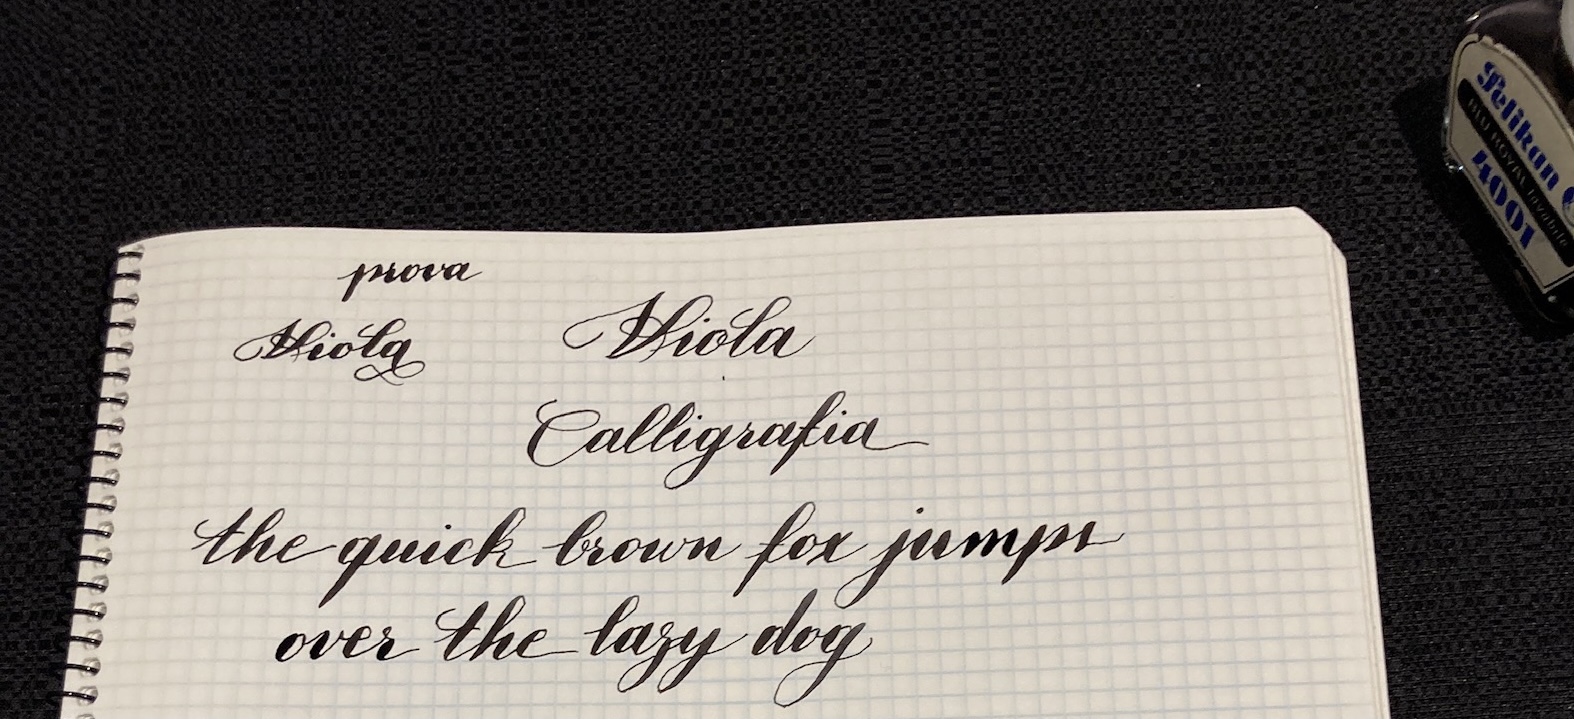 prova
Viola Viola
Calligrafia
the quick brown fox jumps
over the lazy dog
Pelikan
4001